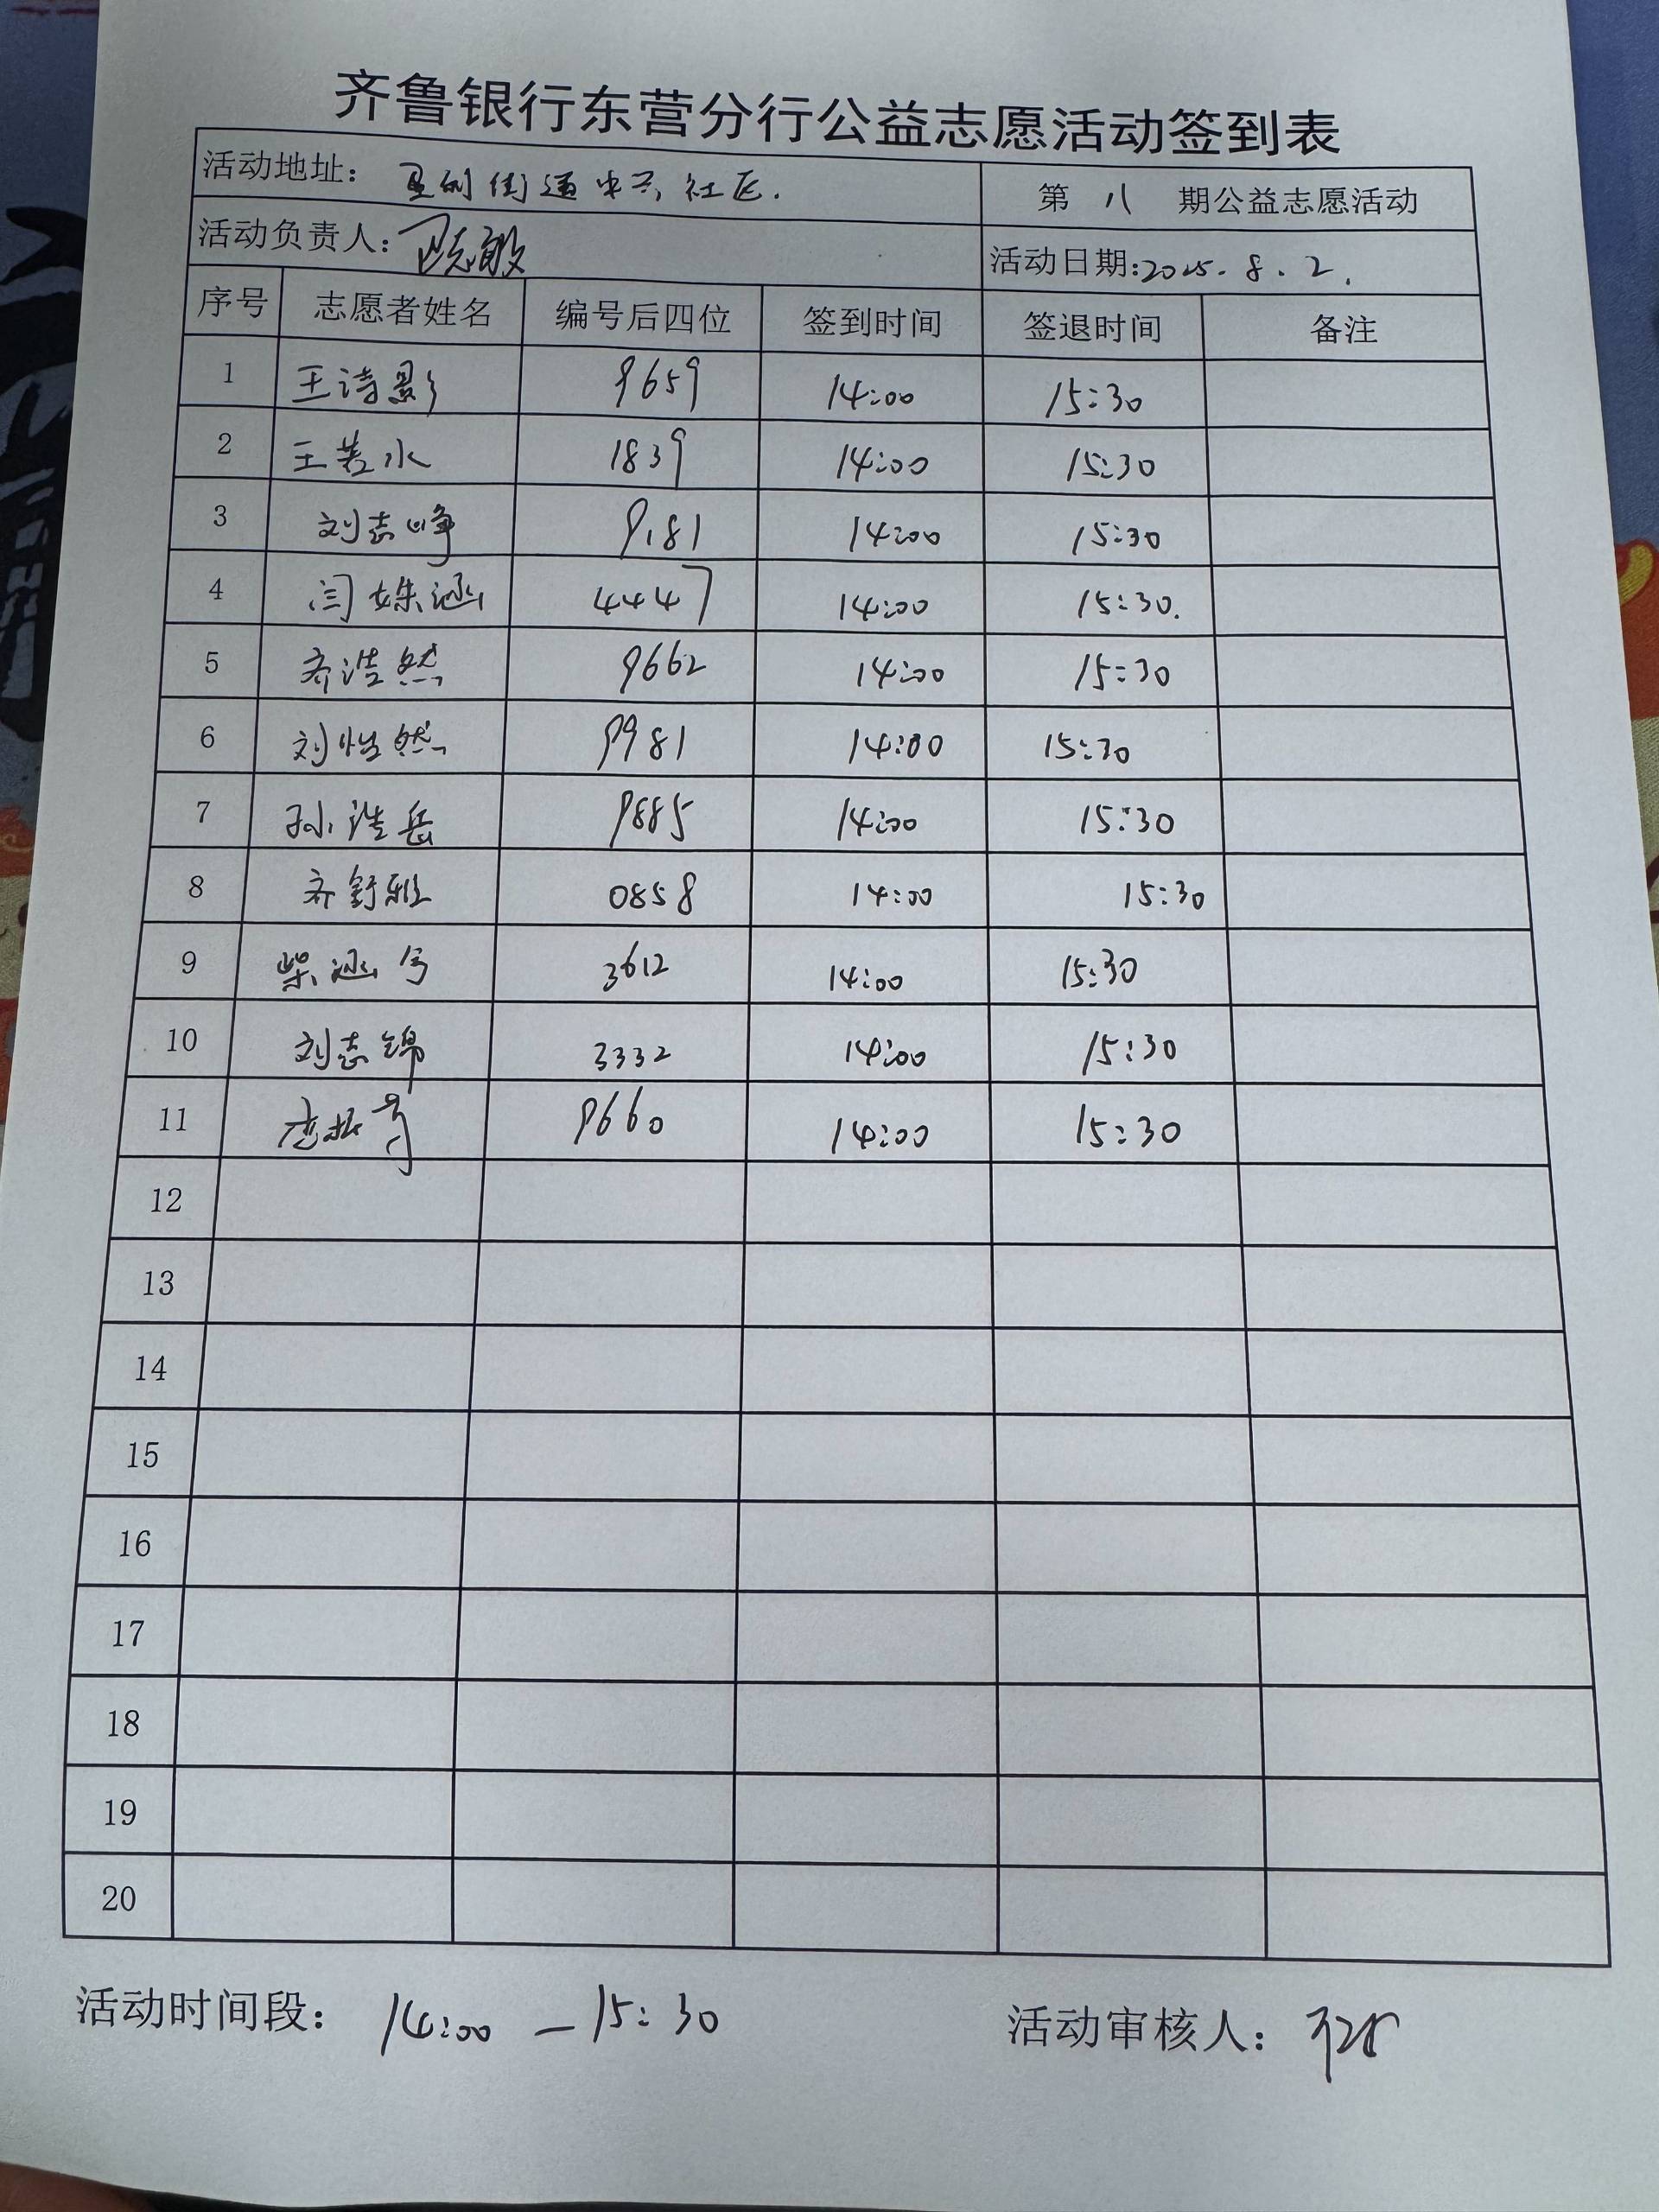 齐鲁银行东营分行公益志愿活动签到表
活动地址： 街道中兴社区. 第 八 期公益志愿活动
活动负责人： 活动日期:2025.8.2.
序号 志愿者姓名 编号后四位 签到时间 签退时间 备注
1 王诗影 9659 14:00 15:30
2 王若水 1839 14:00 15:30
3 刘志峥 9181 14:00 15:30
4 闫姝涵 4447 14:00 15:30.
5 齐浩然 9662 14:00 15:30
6 刘怡然 9981 14:00 15:30
7 孙浩岳 9885 14:00 15:30
8 齐舒雅 0858 14:00 15:30
9 柴涵兮 3612 14:00 15:30
10 刘志锦 3332 14:00 15:30
11 9660 14:00 15:30
12
13
14
15
16
17
18
19
20
活动时间段： 14:00 — 15:30 活动审核人：